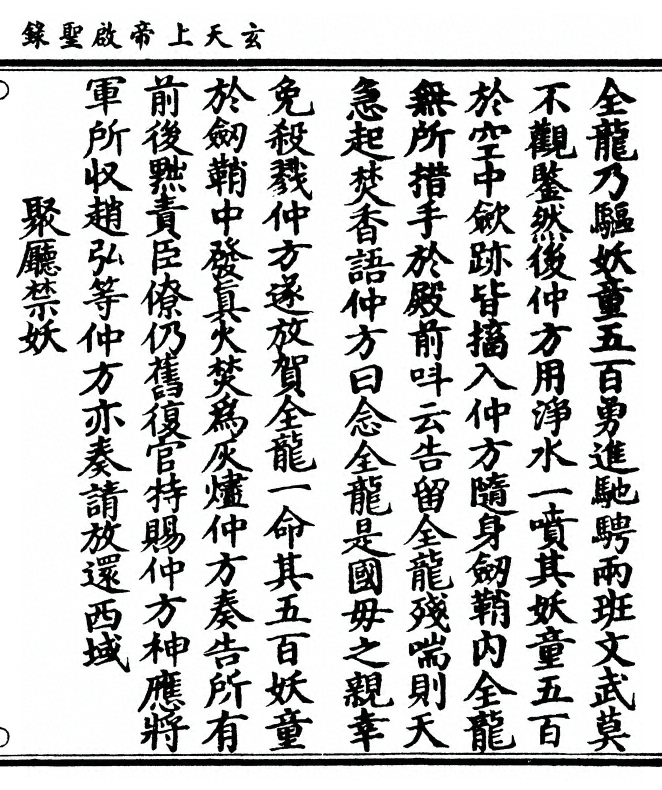 玄天上帝啟聖錄
全龍乃驅妖童五百勇進馳騁兩班文武莫
不觀鑒然後仲方用淨水一噴其妖童五百
於空中歛跡皆搐入仲方隨身劒鞘内全龍
無所措手於殿前呌云告留全龍殘喘則天
急起焚香語仲方曰念全龍是國毋之親幸
免殺戮仲方遂放賀全龍一命其五百妖童
於劒鞘中發眞火焚爲灰燼仲方奏告所有
前後黜責臣僚仍舊復官持賜仲方神應將
軍所収趙弘等仲方亦奏請放還西域
聚廳禁妖